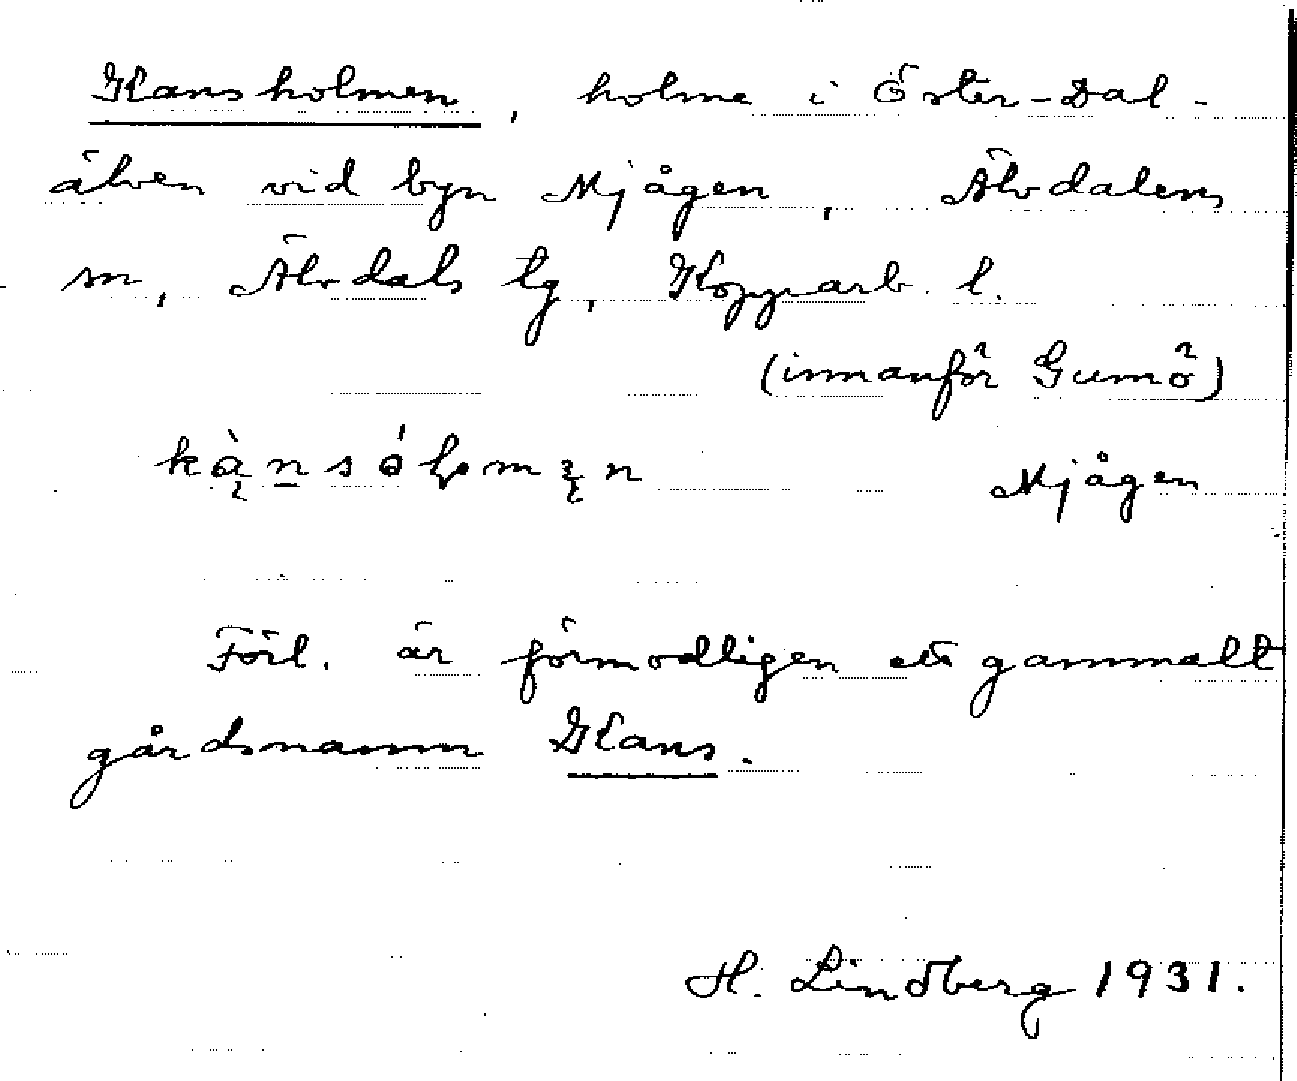 Kansholmen, holme i Öster-Dal-
älven vid byn Mjågen, Älvdalens
sn, Älvdals tg, Kopparb. l.
(innanför Gumö)
Mjågen
Förl. är förmodligen ett gammalt
gårdsnamn Kans.
H. Lindberg 1931.